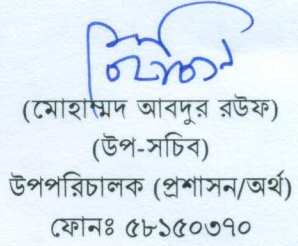 (মোহাম্মদ আবদুর রউফ)
(উপ-সচিব)
উপপরিচালক (প্রশাসন/অর্থ)
ফোনঃ ৫৮১৫০৩৭০